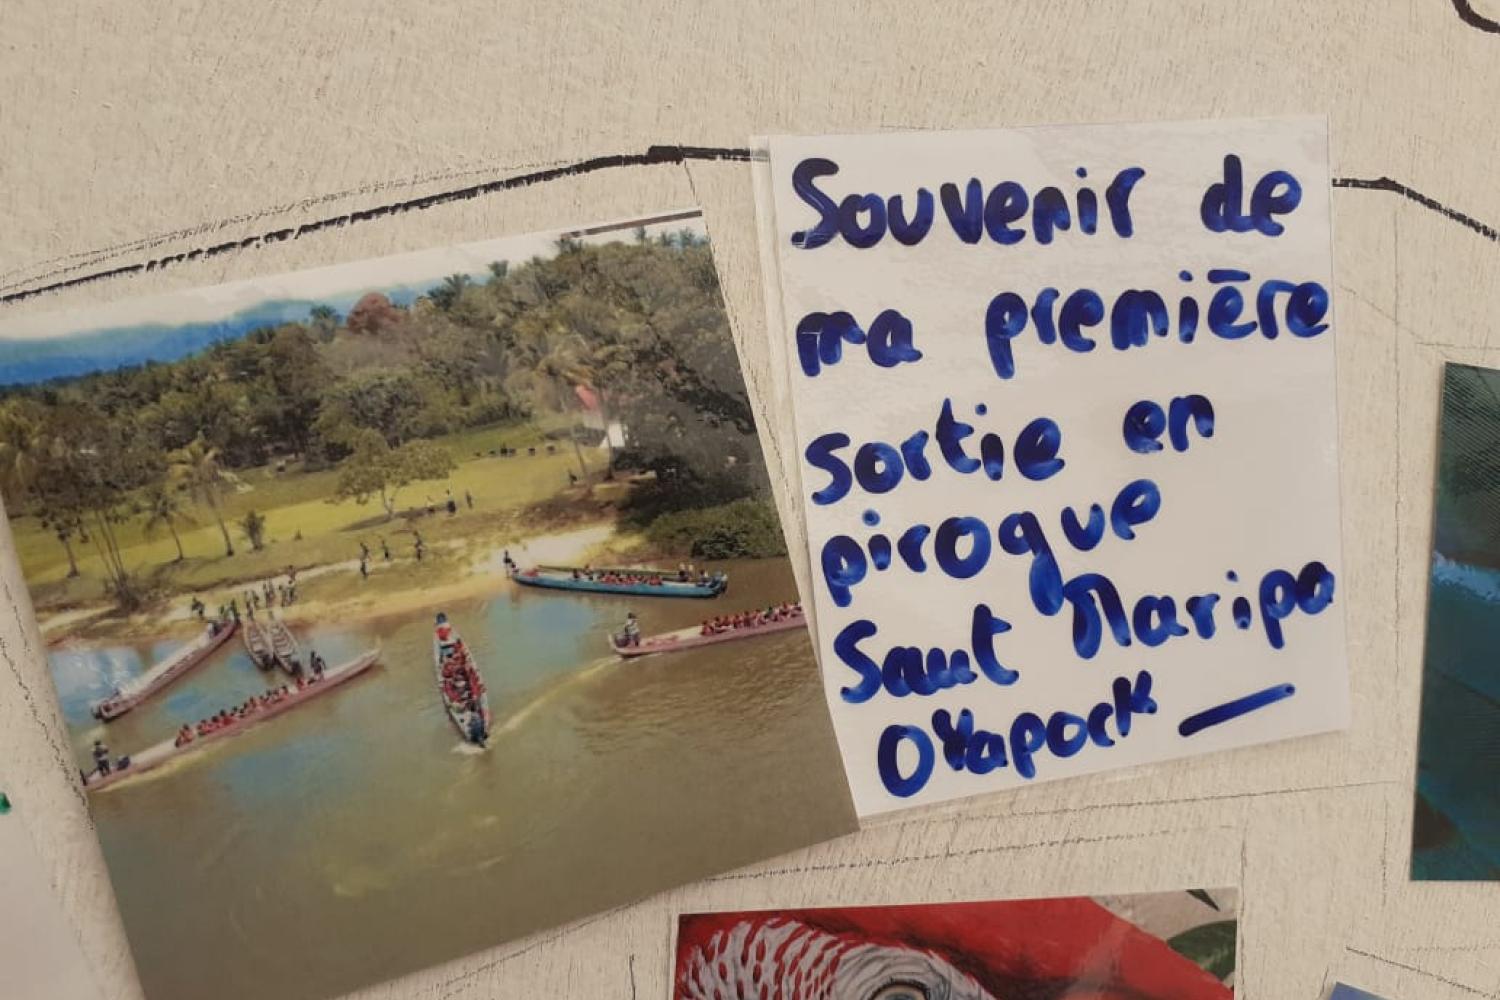 Souvenir de
ma première
sortie en
pirogue
Saut Maripa
OYapock —